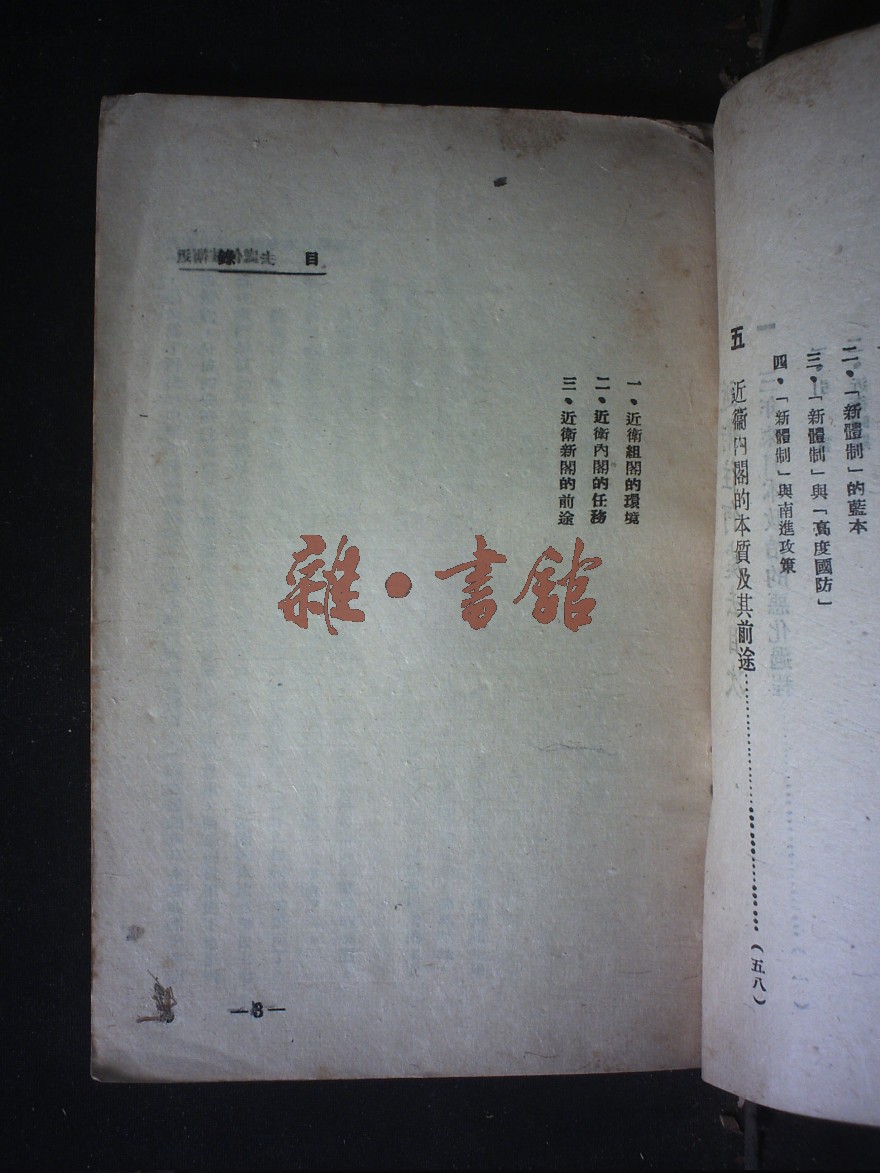 二・「新體制」的藍本
三・「新體制」與「高度國防」
四・「新體制」與南進攻策
五 近衞內閣的本質及其前途……………………(五八)
目 錄
一・近衞組閣的環境
二・近衞內閣的任務
三・近衞新閣的前途
雜・書館